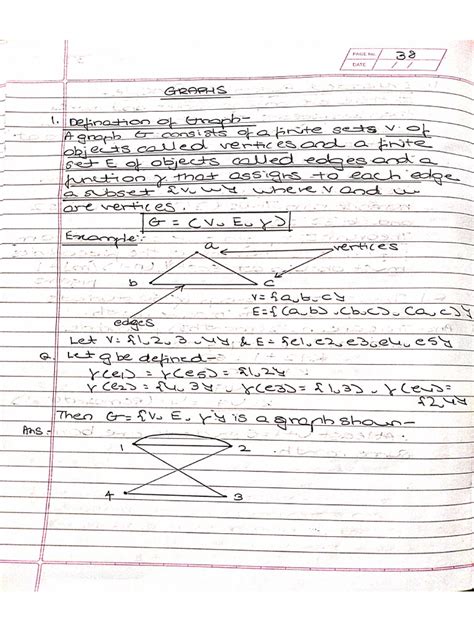 PAGE No. 38
DATE
GRAPHS
1. Defination of Graph-
A graph G consists of a finite sets V of
objects called vertices and a finite
set E of objects called edges and a
function γ that assigns to each edge
a subset {v, w} where v and w
are vertices.
G = (V, E, γ)
Example:-
a
vertices
b
c
V = {a, b, c}
E = {(a, b), (b, c), (a, c)}
edges
Let V = {1, 2, 3, 4} & E = {e1, e2, e3, e4, e5}
Q. Let g be defined-
γ(e1) = γ(e5) = {1, 2}
γ(e2) = {4, 3}, γ(e3) = {1, 3}, γ(e4) =
{2, 4}
Then G = {V, E, γ} is a graph shown-
Ans -
1
2
4
3